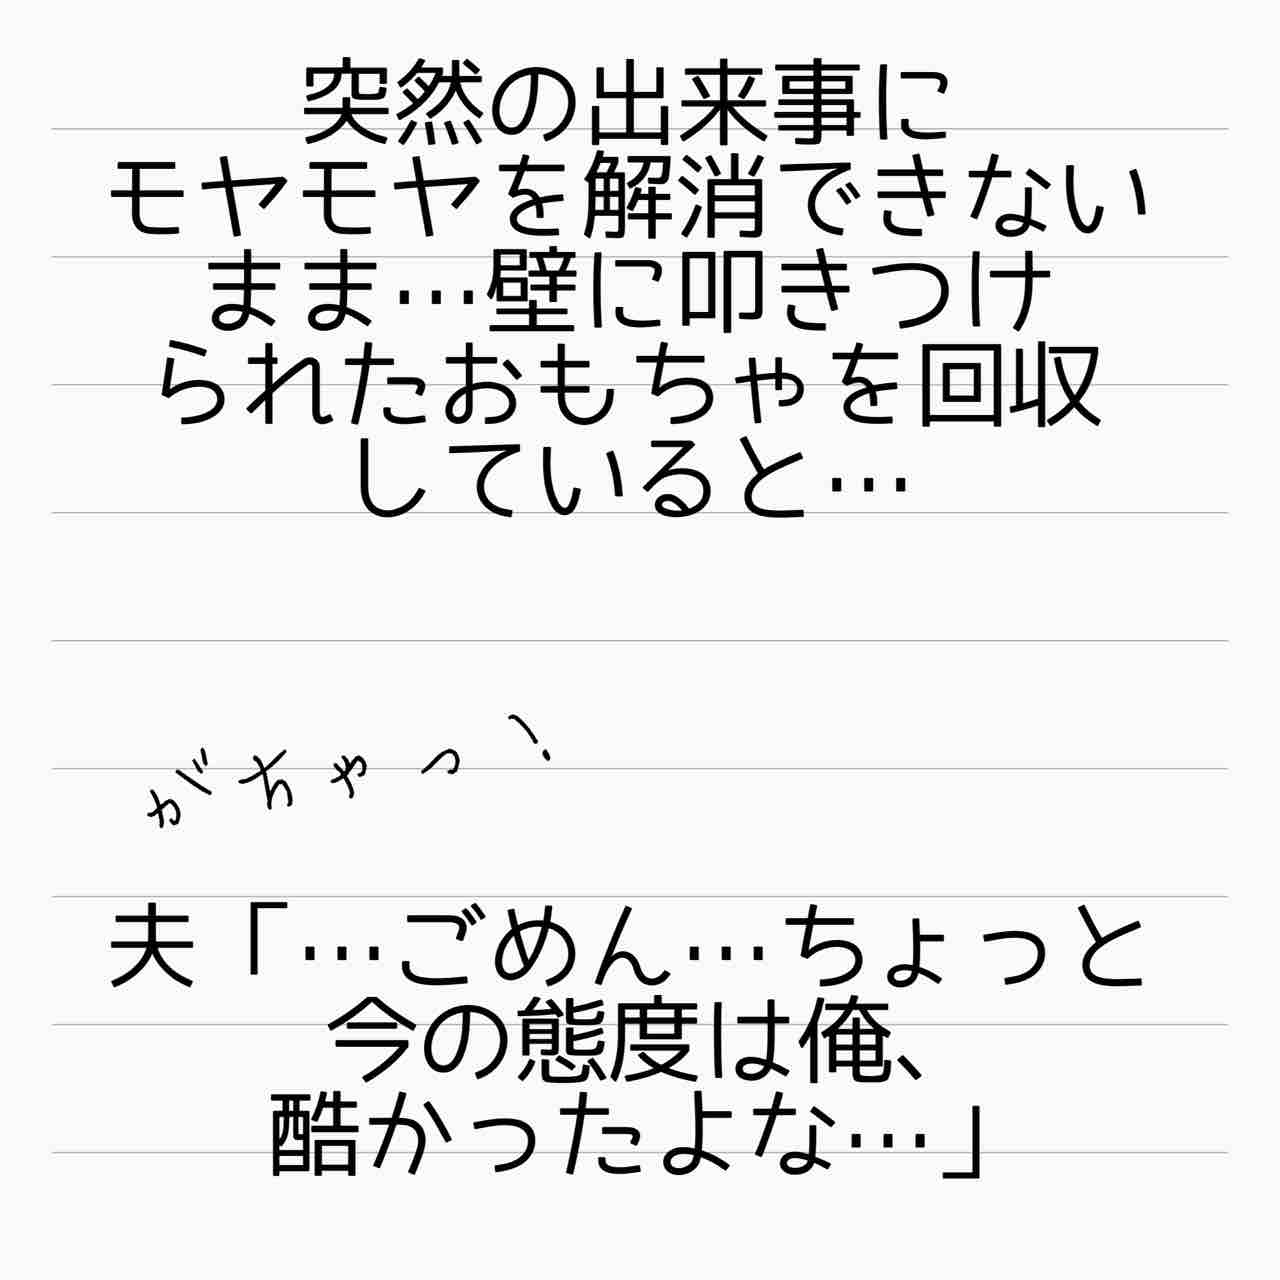 突然の出来事に
モヤモヤを解消できない
まま…壁に叩きつけ
られたおもちゃを回収
していると…
がちゃっ!
夫「…ごめん…ちょっと
今の態度は俺、
酷かったよな…」